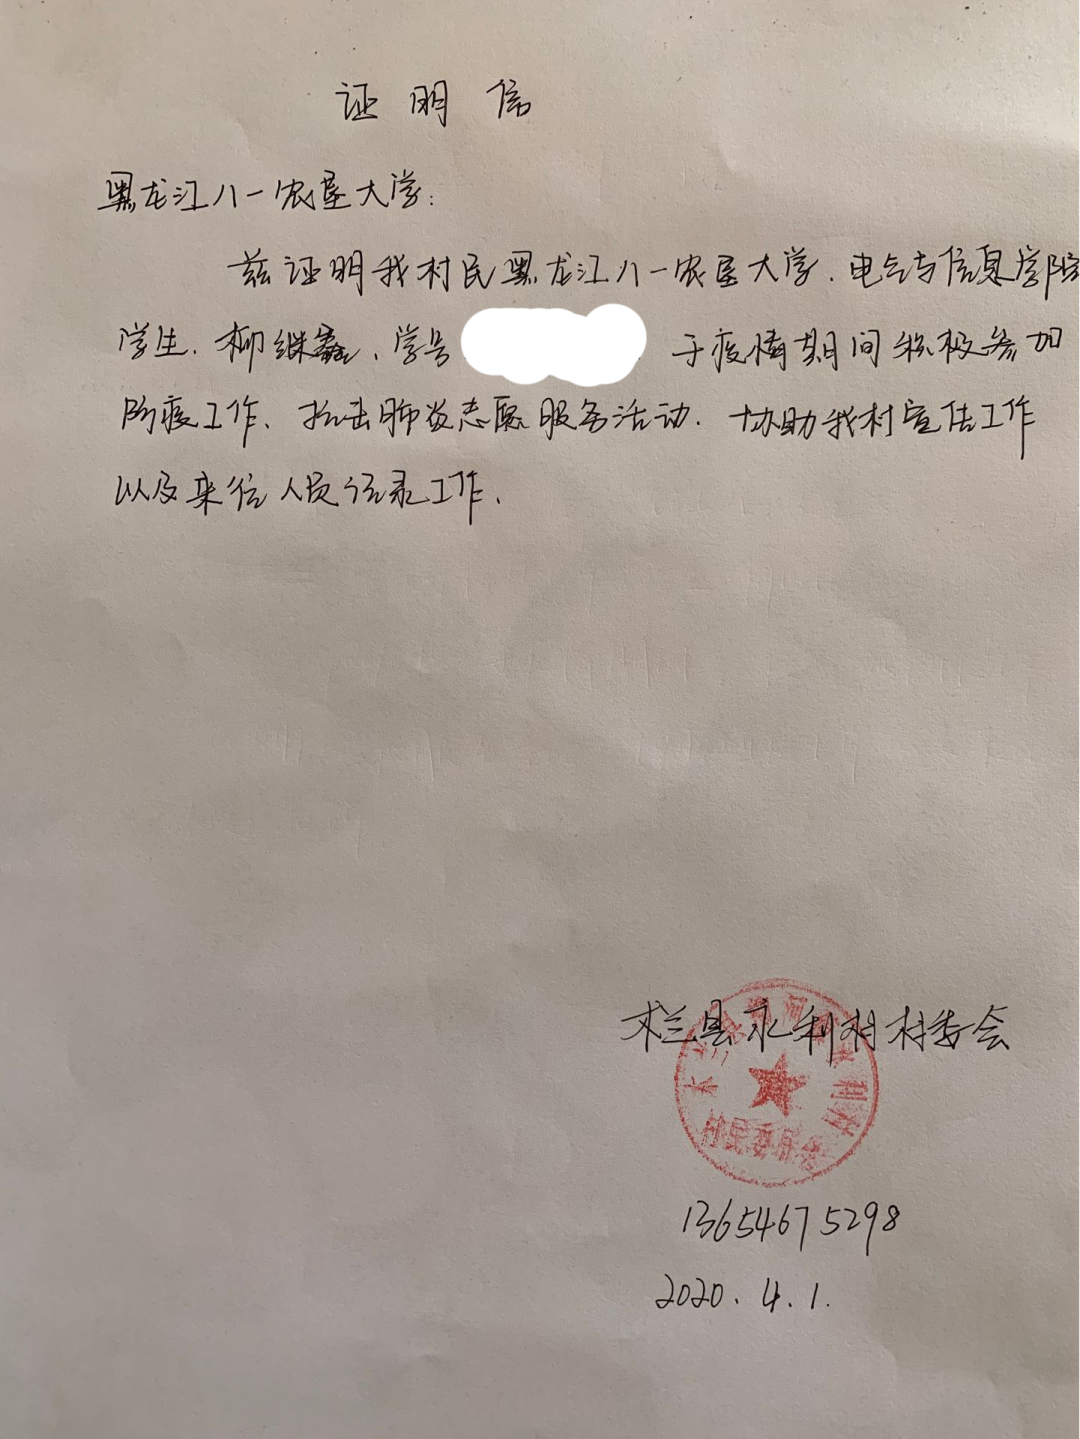 证明信
黑龙江八一农垦大学：
兹证明我村民黑龙江八一农垦大学、电气与信息学院
学生、柳继鑫、学号 于疫情期间积极参加
防疫工作、抗击肺炎志愿服务活动、协助我村宣传工作
以及来往人员记录工作、
木兰县永利村村委会
木兰 永利村
村民委员会
13654675298
2020.4.1.